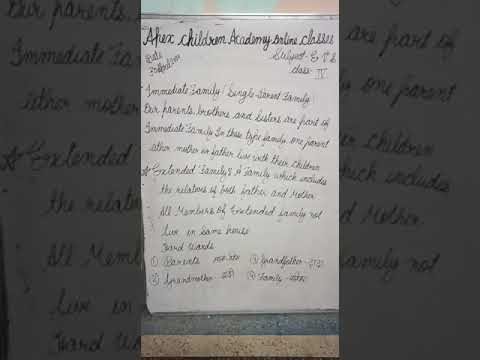 Apex Children Academy online classes
Date Subject- E.V.S
class- IV
Immediate Family (Single Parent Family)
Our parents, brothers, and sisters are part of
Immediate Family In these type family, one parent
ither mother or father live with their children
Extended Family & A Family which includes
the relators of both father and Mother
All Members of Extended family not
live in same house
Hard Words
① Parents ③ Grandfather - दादा
② Grandmother - दादी ④ Family - परिवार